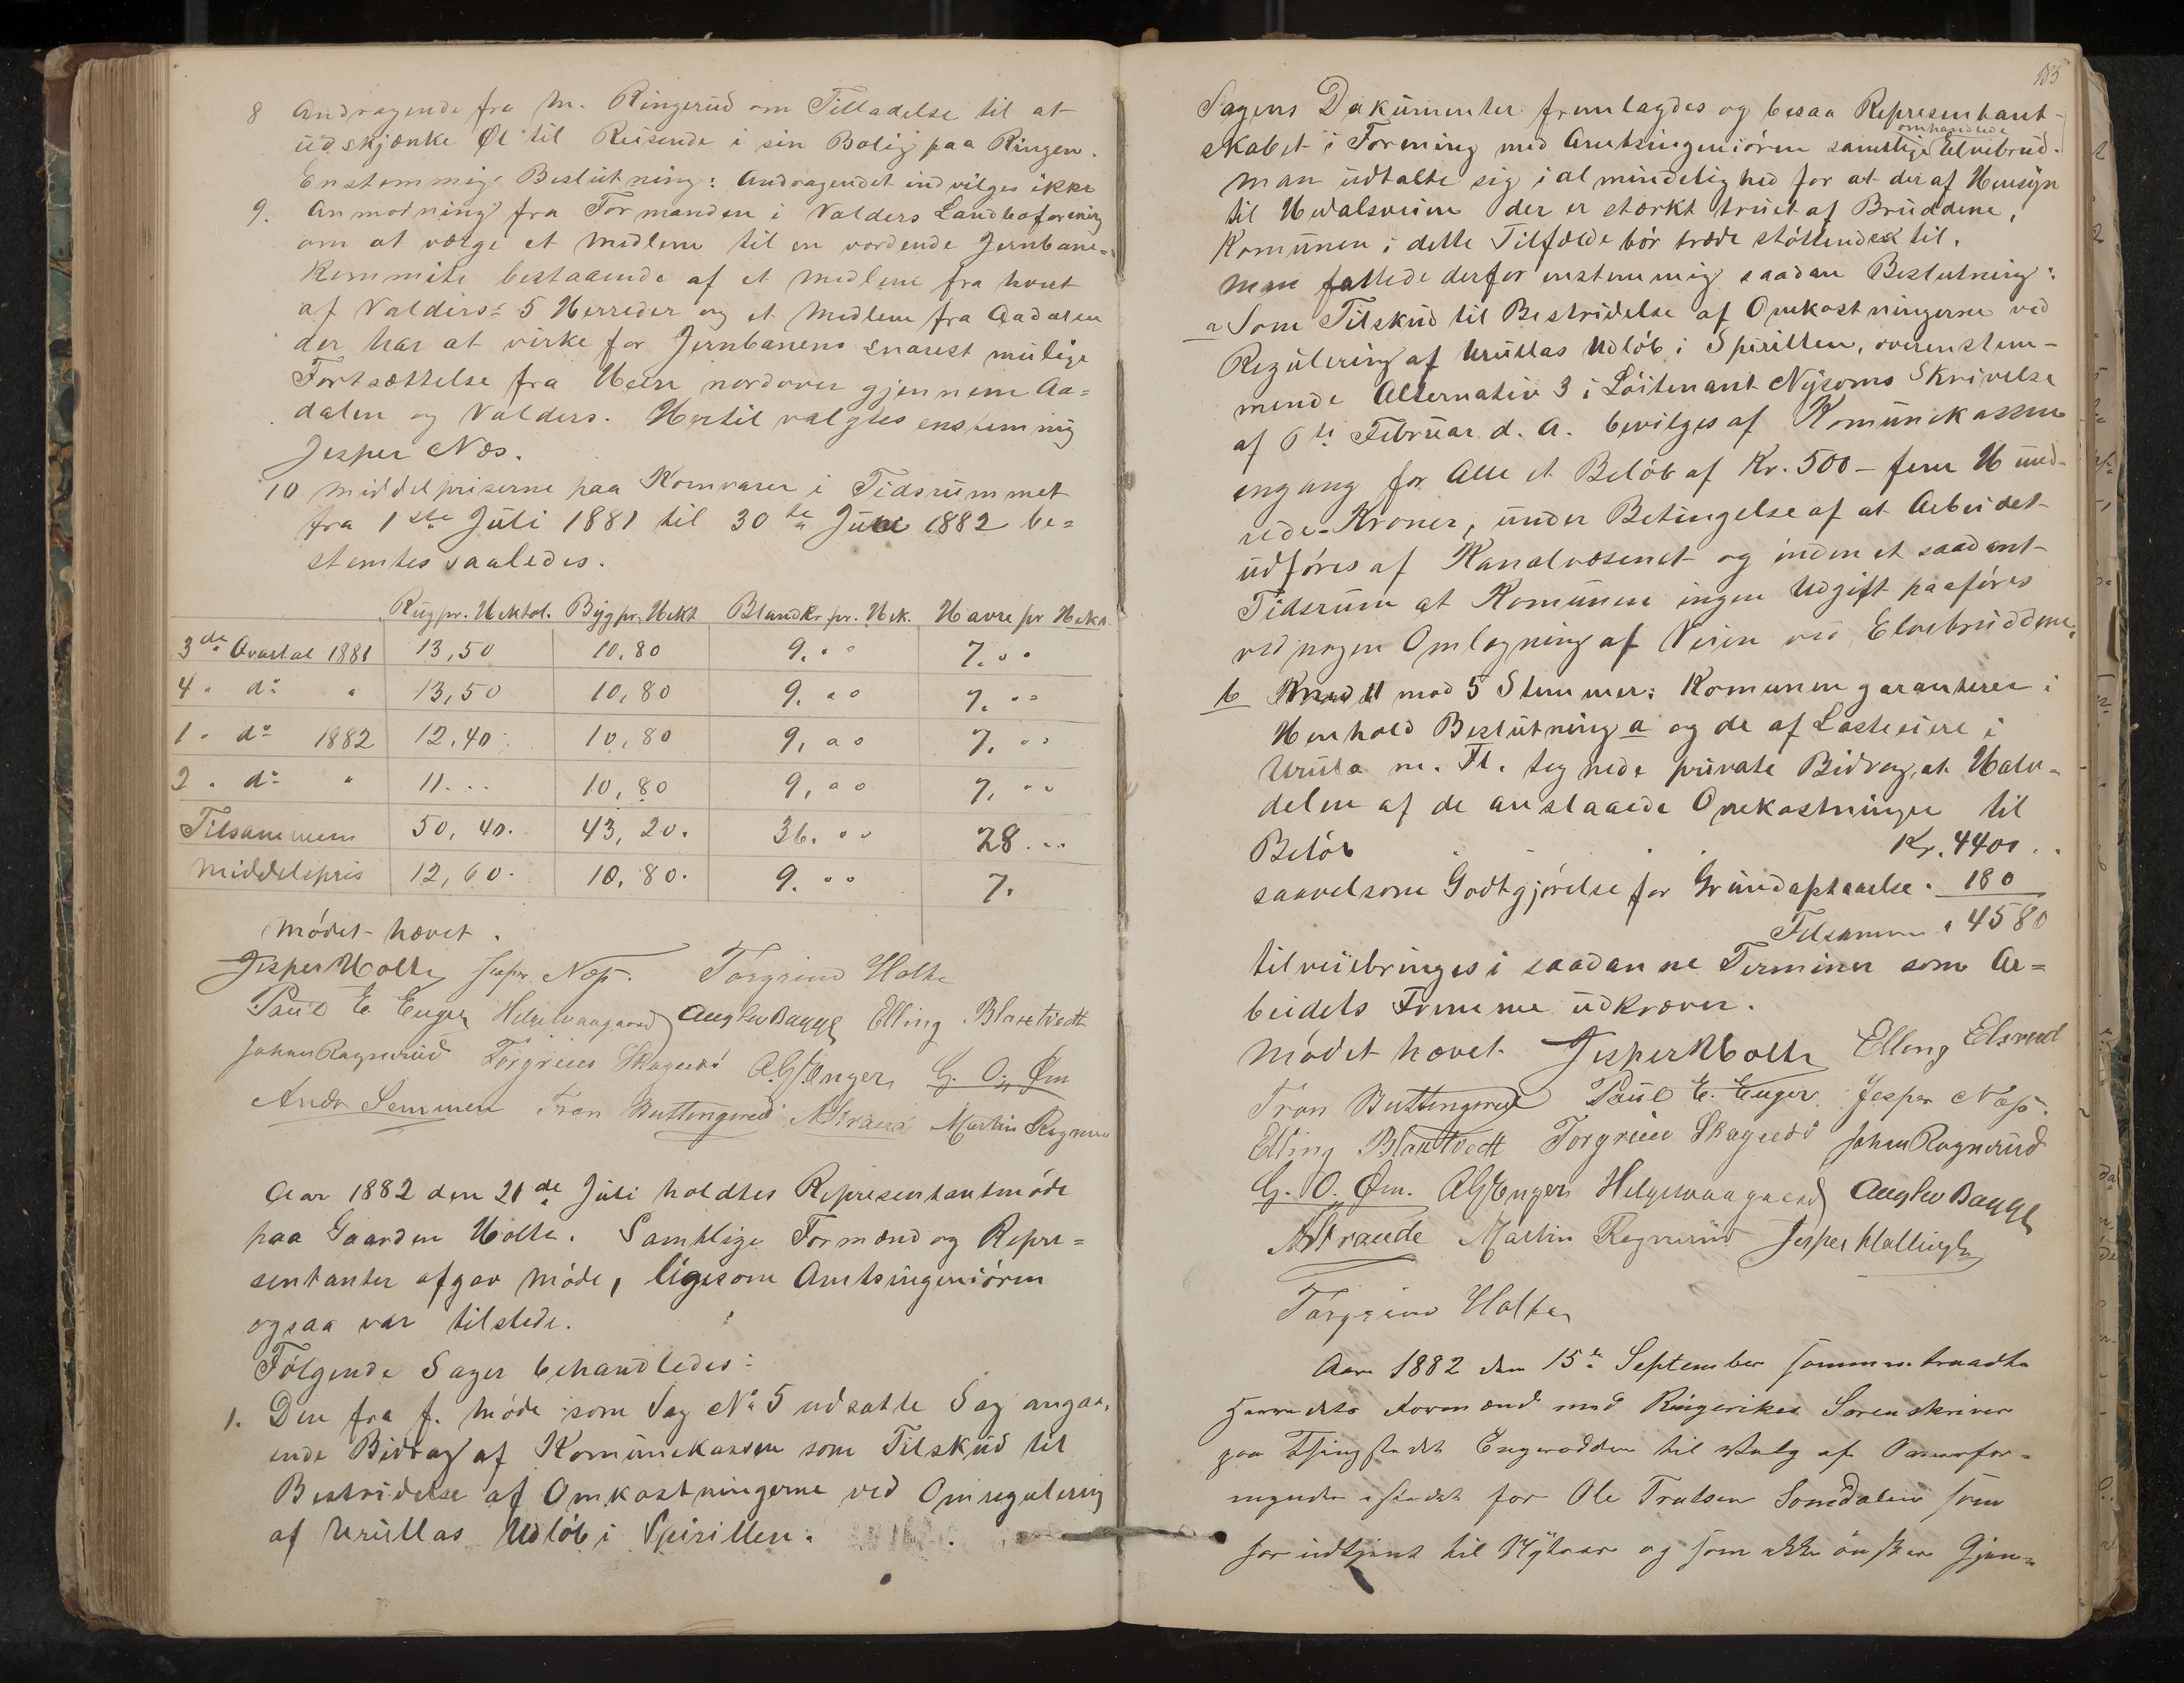 8 Andragende fra M. Ringerud om Tilladelse til at
udskjænke Øl til Reisende i sin Bolig paa Ringen.
Enstemmig Beslutning: Andragendet indvilges ikke
9. Anmodning fra Formanden i Valders Landboforening
om at vælge et Medlem til en vordende Jernbane=
kommite bestaaende af et Medlem fra hvert
af Valders's 5 Herreder og et Medlem fra Aadalen
der har at virke for Jernbanens snarest mulige
Fortsættelse fra Heen nordover gjennem Aa=
dalen og Valders. Hertil valgtes enstemmig
Jesper Næs.
10 Middelpriserne paa Kornvarer i Tidsrummet
fra 1ste Juli 1881 til 30te Juni 1882 be=
stemtes saaledes.
Rug pr. Hektol. Byg pr. Hekt Blandkr. pr. Hek. Havre pr Hekt.
3de Qvartal 1881 13,50 10,80 9. " " 7. " "
4 " do " 13,50 10,80 9. " " 7. " "
1 " do 1882 12,40 10,80 9, " " 7. " "
2 " do " 11. " " 10,80 9, " " 7, " "
Tilsammen 50,40. 43,20. 36. " " 28. " "
Middelspris 12,60. 10,80. 9. " " 7.
Mødet hævet.
Jesper Holte Jesper Næs. Torgrim Holte
Paul E. Enger Helge Aagaard August Bagge Elling Blaktvedt
Johan Ragnerud Torgrim Skagnæs A.G. Enger G. O. Øm
Andr Semmen Tron Buttingsrud A Strande Martin Ragnerud
Aar 1882 den 21de Juli holdtes Representantmøde
paa Gaarden Holte. Samtlige Formænd og Repre=
sentanter afgav Møde, ligesom Amtsingeniøren
ogsaa var tilstede.
Følgende Sager behandledes:
1. Den fra f. Møde som Sag No 5 udsatte Sag angaa,
ende Bidrag af Komunekassen som Tilskud til
Bestridelse af Omkostningerne ved Omregulering
af Urullas Udløb i Spirillen.
185
Sagens Dokumenter fremlagdes og besaa Representant-
skabet i Forening med Amtsingeniøren samtlige omhandlede Elvebrud.
Man udtalte sig i almindelighed for at der af Hensyn
til Hedalsveien der er stærkt truet af Bruddene,
Komunen i dette Tilfælde bør træde støttende til.
Man fattede derfor enstemmig saadan Beslutning:
a Som Tilskud til Bestridelse af Omkostningerne ved
Regulering af Urullas Udløb i Spirillen, overenstem-
mende Alternativ 3 i Løitenant Nysoms Skrivelse
af 6te Februar d. A. bevilges af Komunekassen
engang for Alle et Beløb af Kr. 500 - fem Hund-
rede-Kroner, under Betingelse af at Arbeidet
udføres af Kanalvæsenet og inden et saadant
Tidsrum at Komunen ingen Udgift paaføres
ved nogen Omlægning af Veien ved Elvebruddene.
b Med 11 mod 5 Stemmer: Komunen garanterer i
Henhold Beslutning a og de af Lasteiere i
Urula m. Fl. tegnede private Bidrag, at Halv-
delen af de anslaaede Omkostninger til
Beløb Kr. 4400 . .
saavelsom Godtgjørelse for Grundafstaaelse. 180
Tilsammen " 4580
tilveiebringes i saadanne Terminer som Ar=
beidets Fremme udkræver.
Mødet hævet. Jesper Holte Elling Elsrud
Tron Buttingsrud Paul E. Enger Jesper Næs.
Elling Blaktvedt Torgrim Skagnæs Johan Ragnerud
G. O. Øm. A G Enger Helge Aagaard August Bagge
A Strande Martin Ragnerud Jesper Hallingby
Torgrim Holte
Aar 1882 den 15de September sammentraadte
Herredets Formænd med Ringerikes Sorenskriver
paa Thingstedet Engerodden til Valg af
istedet for Ole Trulsen Somdalen som
har udtjent til Nytaar og som ikke ønsker Gjen=